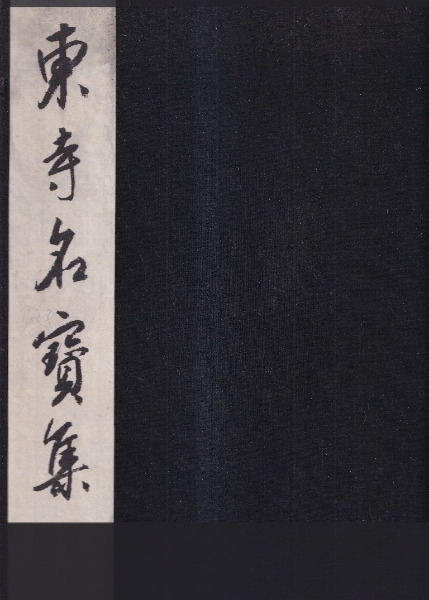 東寺名寶集